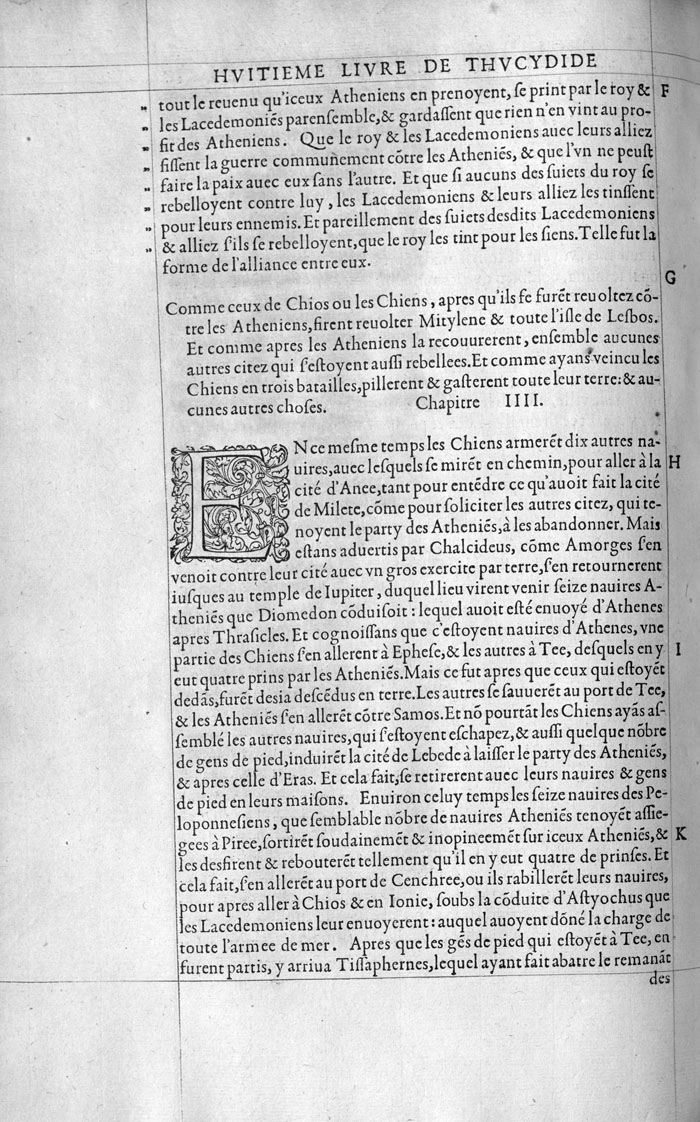 HVITIEME LIVRE DE THVCYDIDE
tout le reuenu qu'iceux Atheniens en prenoyent, ſe print par le roy & F
les Lacedemoniẽs parenſemble, & gardaſſent que rien n'en vint au pro-
fit des Atheniens. Que le roy & les Lacedemoniens auec leurs alliez
fiſſent la guerre communement cõtre les Atheniẽs, & que l'vn ne peuſt
faire la paix auec eux ſans l'autre. Et que ſi aucuns des ſuiets du roy ſe
rebelloyent contre luy, les Lacedemoniens & leurs alliez les tinſſent
pour leurs ennemis. Et pareillement des ſuiets deſdits Lacedemoniens
& alliez ſ'ils ſe rebelloyent, que le roy les tint pour les ſiens. Telle fut la
forme de l'alliance entre eux.
G
Comme ceux de Chios ou les Chiens, apres qu'ils ſe furẽt reuoltez cõ-
tre les Atheniens, firent reuolter Mitylene & toute l'iſle de Leſbos.
Et comme apres les Atheniens la recouurerent, enſemble aucunes
autres citez qui ſ'eſtoyent auſſi rebellees. Et comme ayans veincu les
Chiens en trois batailles, pillerent & gaſterent toute leur terre: & au-
cunes autres choſes. Chapitre IIII.
EN ce meſme temps les Chiens armerẽt dix autres na-
uires, auec leſquels ſe mirẽt en chemin, pour aller à la H
cité d'Anee, tant pour entẽdre ce qu'auoit fait la cité
de Milete, cõme pour ſoliciter les autres citez, qui te-
noyent le party des Atheniẽs, à les abandonner. Mais
eſtans aduertis par Chalcideus, cõme Amorges ſ'en
venoit contre leur cité auec vn gros exercite par terre, ſ'en retournerent
iuſques au temple de Iupiter, duquel lieu virent venir ſeize nauires A-
theniẽs que Diomedon cõduiſoit: lequel auoit eſté enuoyé d'Athenes
apres Thraſicles. Et cognoiſſans que c'eſtoyent nauires d'Athenes, vne
partie des Chiens ſ'en allerent à Epheſe, & les autres à Tee, deſquels en y I
eut quatre prins par les Atheniẽs. Mais ce fut apres que ceux qui eſtoyẽt
dedãs, furẽt deſia deſcẽdus en terre. Les autres ſe ſauuerẽt au port de Tee,
& les Atheniẽs ſ'en allerẽt cõtre Samos. Et nõ pourtãt les Chiens ayãs aſ-
ſemblé les autres nauires, qui ſ'eſtoyent eſchapez, & auſſi quelque nõbre
de gens de pied, induirẽt la cité de Lebede à laiſſer le party des Atheniẽs,
& apres celle d'Eras. Et cela fait, ſe retirerent auec leurs nauires & gens
de pied en leurs maiſons. Enuiron celuy temps les ſeize nauires des Pe-
loponneſiens, que ſemblable nõbre de nauires Atheniẽs tenoyẽt aſſie-
gees à Piree, ſortirẽt ſoudainemẽt & inopineemẽt ſur iceux Atheniẽs, & K
les desfirent & rebouterẽt tellement qu'il en y eut quatre de prinſes. Et
cela fait, ſ'en allerẽt au port de Cenchree, ou ils rabillerẽt leurs nauires,
pour apres aller à Chios & en Ionie, ſoubs la cõduite d'Aſtyochus que
les Lacedemoniens leur enuoyerent: auquel auoyent dõné la charge de
toute l'armee de mer. Apres que les gẽs de pied qui eſtoyẽt à Tee, en
furent partis, y arriua Tiſſaphernes, lequel ayant fait abatre le remanãt
des